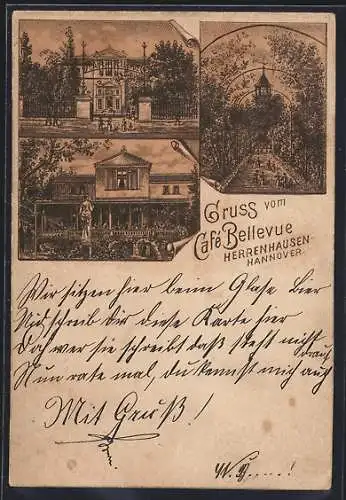 Gruss vom
Café Bellevue
HERRENHAUSEN
HANNOVER.
Wir sitzen hier beim Glase Bier
Und schreib dir diese Karte hier
Doch wer sie schreibt daß steht nicht drauf
Nun rate mal, du kennst mich auch
Mit Gruß!
W. B......!